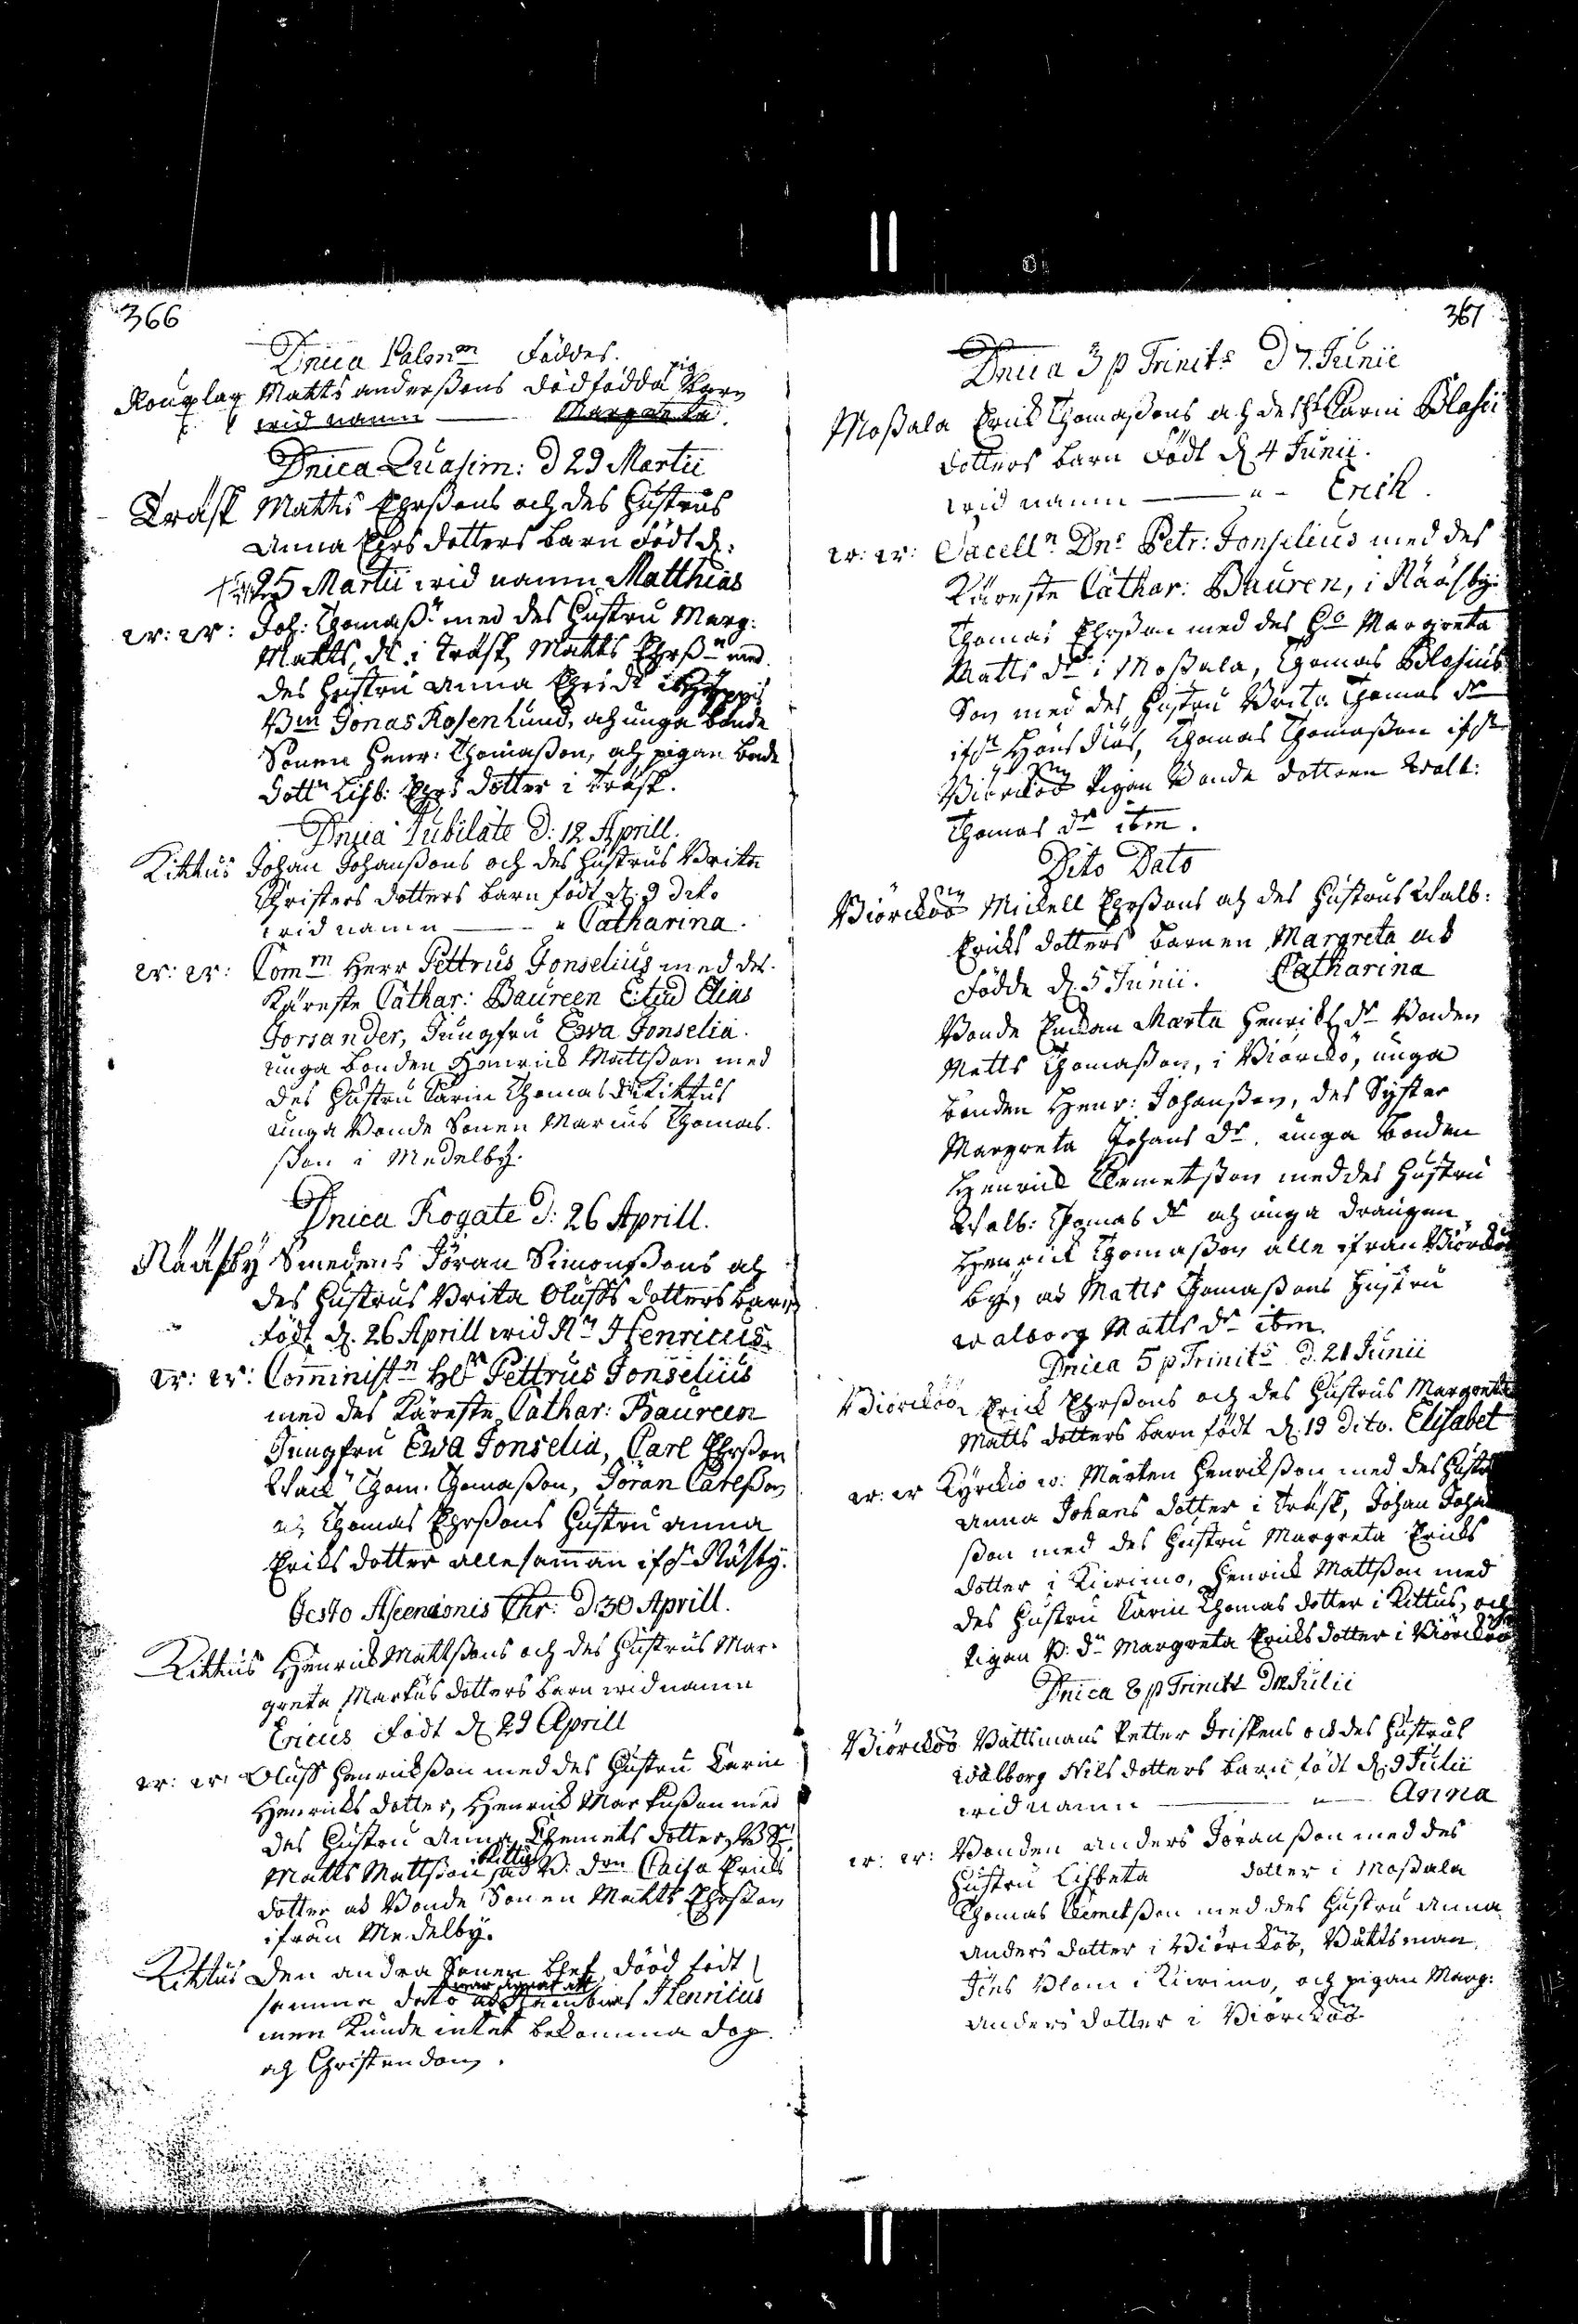 366
Dnica Palm͞ Föddes.
Matts anderßons dödfödda pig barn
wid namn — Margareta.
Dnica Quasim: d 29 Martii
Träsk Matts Ehrßons och des Hustrus
Anna Ehrs dotters barn födt d:
25 Martii wid namn Matthias
w: w: Joh: Thomaß: med des Hustru Marg:
Matts dr i Träsk, Matts Ehrßn med
des Hustru Anna
Jonas Rosenlund, och unga bonde
Sonen Henr: Thomaßon, och pigan bonde
dottn Lisb: Ehrs dotter i Träsk.
Dnica Jubilate d: 12 Aprill.
Kittus Johan Johanßons och des Hustrus Brita
Christers dotters barn födt d: 9 dito
wid namn — " Catharina.
w: w: Comm Herr Pettrus Jonselius med des
Käreste Cathar: Baureen Elias
Forsander, Jungfru Ewa Jonselia.
unga bonden Henrick Mattßon med
des Hustru Karin Thomas dr i Kittus
unga Bonde Sonen Marcus Thomas
ßon i Medelby.
Dnica Rogate d: 26 Aprill.
Näässby Smedens Jöran Simonßons och
des Hustrus Brita Oluffs dotters barn
födt d. 26 Aprill wid Nn Henricus.
w: w: Comministn Hr Pettrus Jonselius
med des Käreste Cathar: Baureen
Jungfru Ewa Jonselia, Carl Ehrßon
Thom. Thomaßon, Jöran Carlßon
och Thomas Ehrßons Hustru Anna
Eriks dotter allesamman ifr Näsby.
Festo Ascensionis Chr: d. 30 Aprill.
Kittus Henrick Mattßons och des Hustrus Mar-
greta Markus dotters barn wid namn
Ericus födt d 29 Aprill
w: w: Oluff Henrickßon med des Hustru Karin
Henricks dotter, Henrick Markußon med
des Hustru Anna Clemets dotter,
Matts Mattßon i Kittus Caisa Erics
dotter och Bonde Sonen Matts Ehrßon
ifrån Medelby.
Kittus den andra Sonen blef död födt
samma dato Henricus
men kunde intet bekomma dop
och Christendom.
367
Dnica 3 p Trinit:s d 7. Junii
Moßala Erick Thomaßons och des Karin Blasii
dotters barn födt d 4 Junii.
wid namn — " — Erich.
w: w: Sacelln Dns Petr: Jonselius med des
Käreste Cathar: Bauren, i Nääsby.
Thomas Ehrßon med des Ho Margreta
Matts dr i Moßala, Thomas Blasius
Son med des Hustru Brita Thomas dr
ifrn Hönsnäs, Thomas Thomaßon ifrn
Biörckö Pigan Bonde dottren Walb:
Thomas dr ibm.
Dito Dato
Biörckö Mickell Ehrßons och des Hustrus Walb:
Ericks dotters barnen Margreta och
födde d. 5 Junii. Catharina
Bonde Enckan Marta Henricks dr Bonden
Matts Thomaßon, i Biörckö, unga
bonden Henr: Johanßon, des Syster
Margreta Johans dr. unga bonden
Henrick Clemetßon med des Hustru
Walb: Thomas dr och unga drängen
Henrick Thomaßon alle ifrån Biörckö
by, och Matts Thomaßons Hustru
walborg Matts dr ibm.
Dnica 5 p Trinit:s d. 21 Junii
Biörckö Erick Ehrßons och des Hustrus Margreta
Matts dotters barn födt d. 19 dito. Elisabet
w: w Kyrckio w: Mårten Henrickßon med des Hustru
Anna Johans dotter i Träsk, Johan Johan
ßon med des Hustru Margreta Ericks
dotter i Kivimo, Henrick Mattßon med
des Hustru Karin Thomas dotter i Kittus, och
Pigan B: dr Margreta Ericks dotter i Biörckö
Dnica 8 p Trinit:s Julii
Biörckö Båttsmans Petter och des Hustrus
walborg Nils dotters barn födt d. 9 Julii
wid namn — " — Anna
w: w: Bonden Anders Jöranßon med des
Hustru Lisbeta dotter i Moßala
Thomas Clemetßon med des Hustru Anna
Anders dotter i Biörckö, Båttsman
Jöns Blom i Kivimo, och pigan Marg:
Anders dotter i Biörckö.